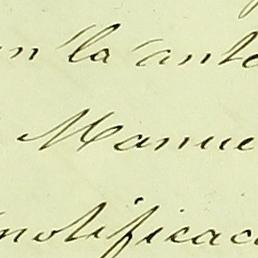 en la ante
Manue
notificac